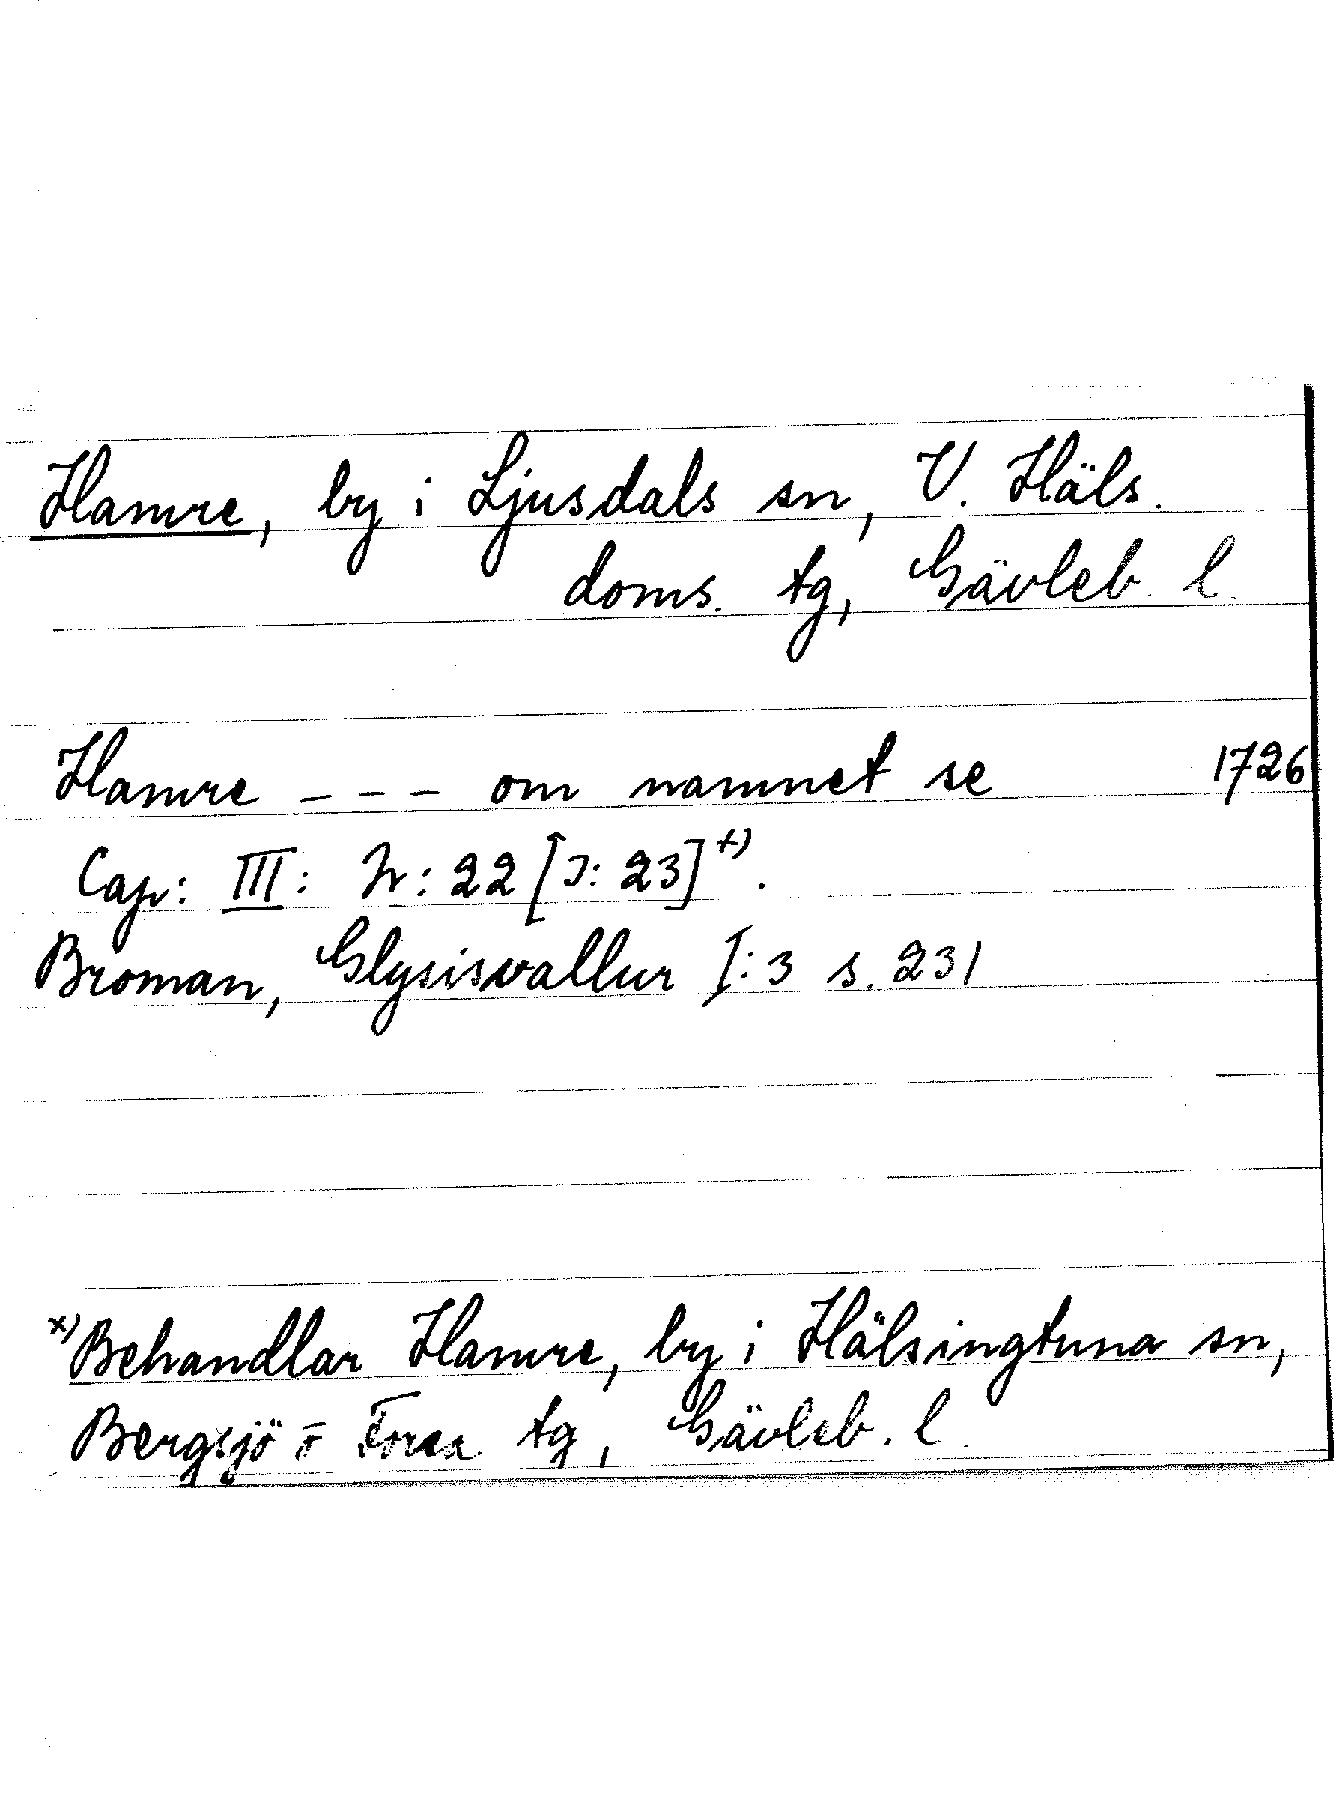 Hamre, by i Ljusdals sn, V. Häls.
doms. tg, Gävleb. l.
Hamre - - - om namnet se 1726
Cap: III: Nr: 22 [I: 23] x).
Broman, Glysisvallur I:3 s. 231
x) Behandlar Hamre, by i Hälsingtuna sn,
Bergsjö o Forsa tg, Gävleb. l.